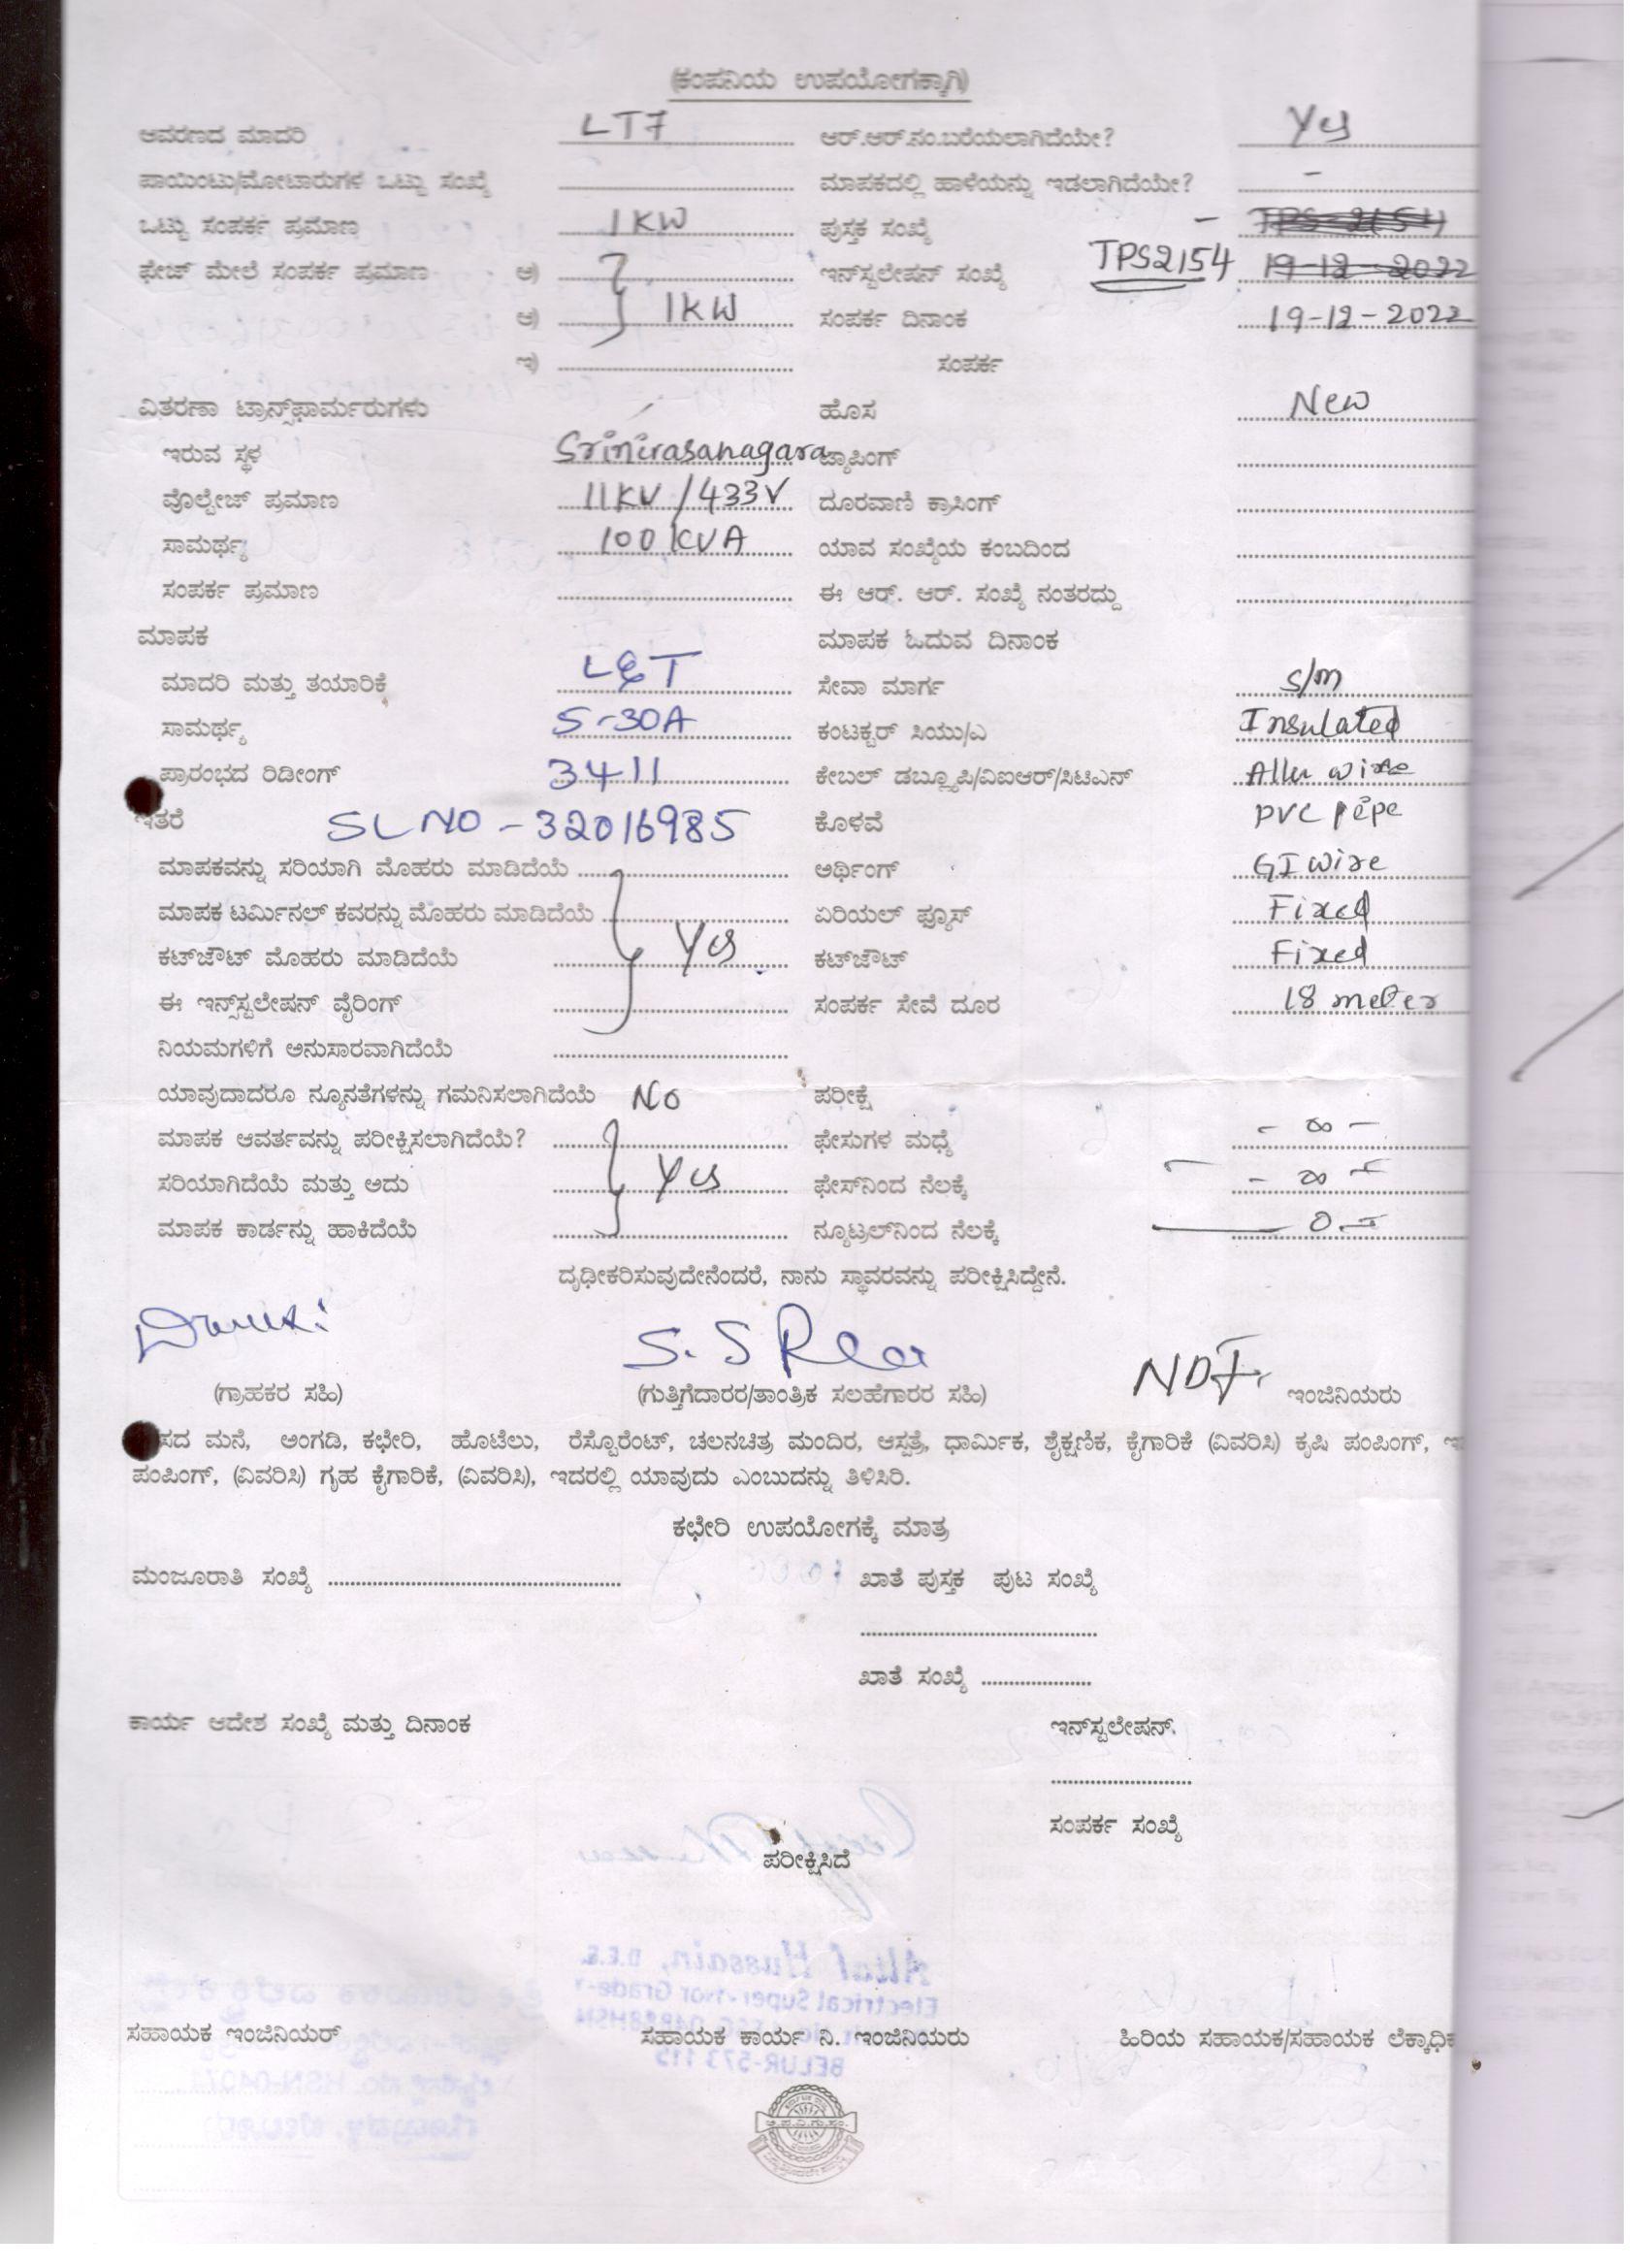 (ಕಂಪನಿಯ ಉಪಯೋಗಕ್ಕಾಗಿ)
ಆವರಣದ ಮಾದರಿ LT7 ಆರ್.ಆರ್.ನಂ.ಬರೆಯಲಾಗಿದೆಯೇ? Yes
ಪಾಯಿಂಟು/ಮೋಟಾರುಗಳ ಒಟ್ಟು ಸಂಖ್ಯೆ ಮಾಪಕದಲ್ಲಿ ಹಾಳೆಯನ್ನು ಇಡಲಾಗಿದೆಯೇ? -
ಒಟ್ಟು ಸಂಪರ್ಕ ಪ್ರಮಾಣ 1KW ಪುಸ್ತಕ ಸಂಖ್ಯೆ - TPS 2154
ಫೇಜ್ ಮೇಲೆ ಸಂಪರ್ಕ ಪ್ರಮಾಣ ಅ) ಇನ್‌ಸ್ಟಲೇಷನ್ ಸಂಖ್ಯೆ TPS2154 19-12-2022
ಆ) 1KW ಸಂಪರ್ಕ ದಿನಾಂಕ 19-12-2022
ಇ) ಸಂಪರ್ಕ
ವಿತರಣಾ ಟ್ರಾನ್ಸ್‌ಫಾರ್ಮರುಗಳು ಹೊಸ New
ಇರುವ ಸ್ಥಳ Srinivasanagara ಟ್ಯಾಪಿಂಗ್
ವೊಲ್ಟೇಜ್ ಪ್ರಮಾಣ 11KV/433V ದೂರವಾಣಿ ಕ್ರಾಸಿಂಗ್
ಸಾಮರ್ಥ್ಯ 100KVA ಯಾವ ಸಂಖ್ಯೆಯ ಕಂಬದಿಂದ
ಸಂಪರ್ಕ ಪ್ರಮಾಣ ಈ ಆರ್. ಆರ್. ಸಂಖ್ಯೆ ನಂತರದ್ದು
ಮಾಪಕ ಮಾಪಕ ಓದುವ ದಿನಾಂಕ
ಮಾದರಿ ಮತ್ತು ತಯಾರಿಕೆ L&T ಸೇವಾ ಮಾರ್ಗ S/m
ಸಾಮರ್ಥ್ಯ 5-30A ಕಂಟಕ್ಟರ್ ಸಿಯು/ಎ Insulated
ಪ್ರಾರಂಭದ ರಿಡೀಂಗ್ 3411 ಕೇಬಲ್ ಡಬ್ಲ್ಯೂಪಿ/ವಿಐಆರ್/ಸಿಟಿಎಸ್ Allu wire
ಇತರೆ SL NO - 32016985 ಕೊಳವೆ PVC pipe
ಮಾಪಕವನ್ನು ಸರಿಯಾಗಿ ಮೊಹರು ಮಾಡಿದೆಯೆ ಅರ್ಥಿಂಗ್ GI wire
ಮಾಪಕ ಟರ್ಮಿನಲ್ ಕವರನ್ನು ಮೊಹರು ಮಾಡಿದೆಯೆ ಏರಿಯಲ್ ಫ್ಯೂಸ್ Fixed
ಕಟ್‌ಜೌಟ್ ಮೊಹರು ಮಾಡಿದೆಯೆ Yes ಕಟ್‌ಜೌಟ್ Fixed
ಈ ಇನ್ಸ್‌ಸ್ಟಲೇಷನ್ ವೈರಿಂಗ್ ಸಂಪರ್ಕ ಸೇವೆ ದೂರ 18 meter
ನಿಯಮಗಳಿಗೆ ಅನುಸಾರವಾಗಿದೆಯೆ
ಯಾವುದಾದರೂ ನ್ಯೂನತೆಗಳನ್ನು ಗಮನಿಸಲಾಗಿದೆಯೆ No ಪರೀಕ್ಷೆ
ಮಾಪಕ ಆವರ್ತವನ್ನು ಪರೀಕ್ಷಿಸಲಾಗಿದೆಯೆ? ಫೇಸುಗಳ ಮಧ್ಯೆ - ∞ -
ಸರಿಯಾಗಿದೆಯೆ ಮತ್ತು ಅದು Yes ಫೇಸ್‌ನಿಂದ ನೆಲಕ್ಕೆ - ∞ -
ಮಾಪಕ ಕಾರ್ಡನ್ನು ಹಾಕಿದೆಯೆ ನ್ಯೂಟ್ರಲ್‌ನಿಂದ ನೆಲಕ್ಕೆ - 0 -
ದೃಢೀಕರಿಸುವುದೇನೆಂದರೆ, ನಾನು ಸ್ಥಾವರವನ್ನು ಪರೀಕ್ಷಿಸಿದ್ದೇನೆ.
(ಗ್ರಾಹಕರ ಸಹಿ) (ಗುತ್ತಿಗೆದಾರರ/ತಾಂತ್ರಿಕ ಸಲಹೆಗಾರರ ಸಹಿ) ಇಂಜಿನಿಯರು
ಸದ ಮನೆ, ಅಂಗಡಿ, ಕಛೇರಿ, ಹೊಟೆಲು, ರೆಸ್ಟೊರೆಂಟ್, ಚಲನಚಿತ್ರ ಮಂದಿರ, ಆಸ್ಪತ್ರೆ, ಧಾರ್ಮಿಕ, ಶೈಕ್ಷಣಿಕ, ಕೈಗಾರಿಕೆ (ವಿವರಿಸಿ) ಕೃಷಿ ಪಂಪಿಂಗ್,
ಪಂಪಿಂಗ್, (ವಿವರಿಸಿ) ಗೃಹ ಕೈಗಾರಿಕೆ, (ವಿವರಿಸಿ), ಇದರಲ್ಲಿ ಯಾವುದು ಎಂಬುದನ್ನು ತಿಳಿಸಿರಿ.
ಕಛೇರಿ ಉಪಯೋಗಕ್ಕೆ ಮಾತ್ರ
ಮಂಜೂರಾತಿ ಸಂಖ್ಯೆ ಖಾತೆ ಪುಸ್ತಕ ಪುಟ ಸಂಖ್ಯೆ
ಖಾತೆ ಸಂಖ್ಯೆ
ಕಾರ್ಯ ಆದೇಶ ಸಂಖ್ಯೆ ಮತ್ತು ದಿನಾಂಕ ಇನ್‌ಸ್ಟಲೇಷನ್.
ಸಂಪರ್ಕ ಸಂಖ್ಯೆ
ಪರೀಕ್ಷಿಸಿದೆ
ಸಹಾಯಕ ಇಂಜಿನಿಯರ್ ಸಹಾಯಕ ಕಾರ್ಯ ನಿ. ಇಂಜಿನಿಯರು ಹಿರಿಯ ಸಹಾಯಕ/ಸಹಾಯಕ ಲೆಕ್ಕಾಧಿಕ